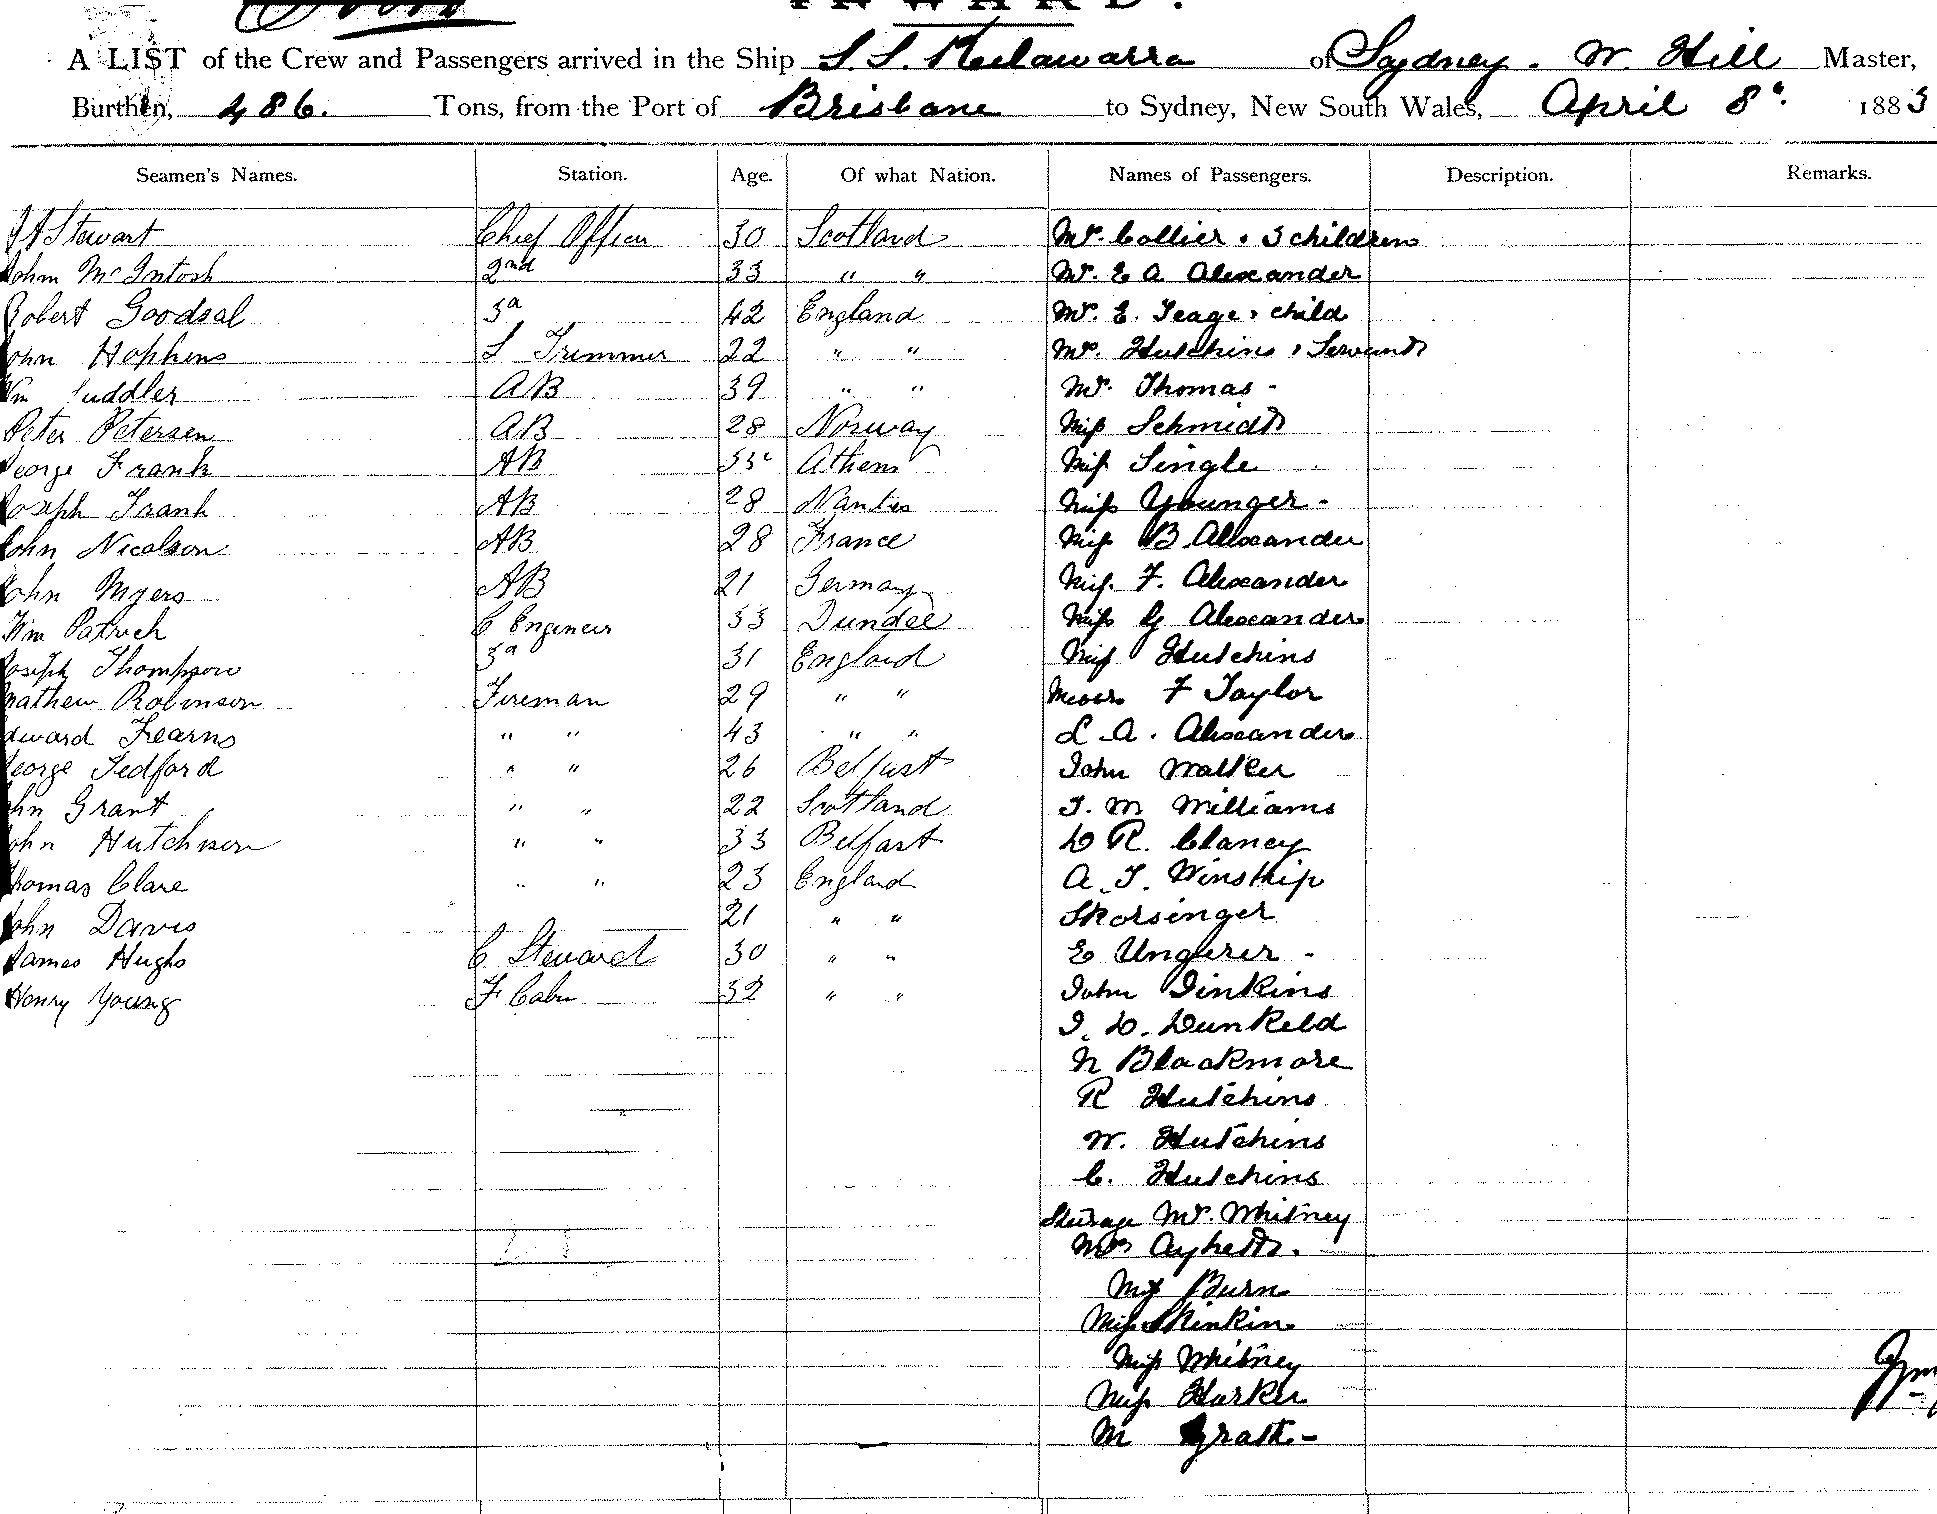 INWARD.
A LIST of the Crew and Passengers arrived in the Ship S.S. Keilawarra of Sydney. W. Hill Master,
Burthen, 486. Tons, from the Port of Brisbane to Sydney, New South Wales, April 8" 1883
Seamen's Names. Station. Age. Of what Nation. Names of Passengers. Description. Remarks.
Stewart Chief Officer 30 Scotland Mr. Collier & 3 children
John McIntosh 2nd 33 " " Mr. E A Alexander
Robert Goodsal 3d 42 England Mr. E. Teage & child
John Hopkins L Trimmer 22 " " Mrs. Hutchins & Servant
Wm AB 39 " " Mr. Thomas -
Peter Petersen AB 28 Norway Miss Schmidt
George Frank AB 33 Athens Miss Single
Joseph Frank AB 28 Nantes Miss Younger -
John Nicolson AB 28 France Miss B. Alexander
John Myers AB 21 Germany Miss F. Alexander
Wm Patrick C Engineer 33 Dundee Miss G Alexander
Joseph Thompson 3d 31 England Miss Hutchins
Mathew Robinson Fireman 29 " " Messrs F Taylor
Edward Fearns " " 43 " " L. A. Alexander
George Tedford " " 26 Belfast John Walker
John Grant " " 22 Scotland T. M Williams
John Hutchison " " 33 Belfast D R. Clancy
Thomas Clare " " 23 England A. T. Winship
John Davis 21 " " Skorsinger
James Hughs C Steward 30 " " E Ungerer -
Henry Young F Cabin 32 " " John Jinkins
J. D. Dunkeld
N Blackmore
R Hutchins
W. Hutchins
C. Hutchins
Sturage Mr. Whitney
Mrs
Miss Burn
Miss Skinkin
Miss Whitney
Miss Harker
M Grath -